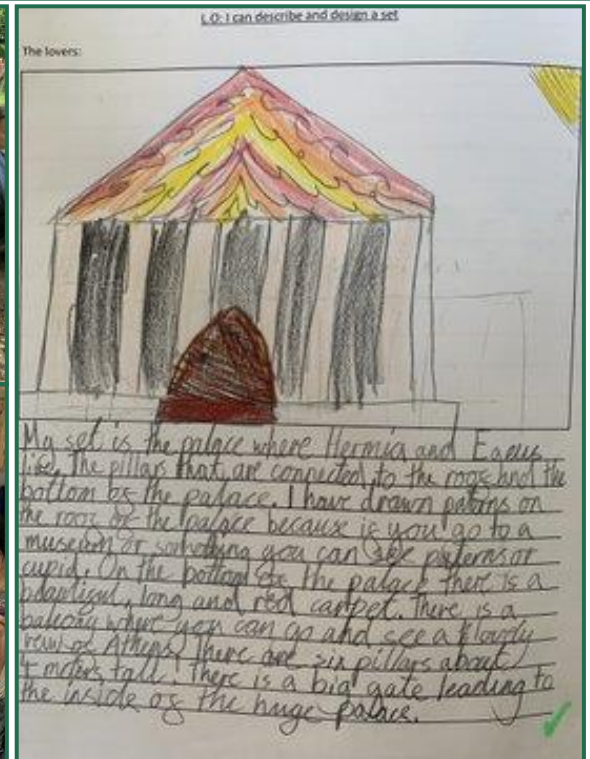 L.O: I can describe and design a set
The lovers:
My set is the palace where Hermia and Egeus
live. The pillars that are connected to the roof and the
bottom of the palace. I have drawn patons on
the roof of the palace because if you go to a
museum or something you can see paterns or
cupid. On the bottom of the palace there is a
beautiful, long and red carpet. There is a
balcony where you can go and see a lovely
of Athens. There are six pillars about
4 meters tall. There is a big gate leading to
the inside of the huge palace.